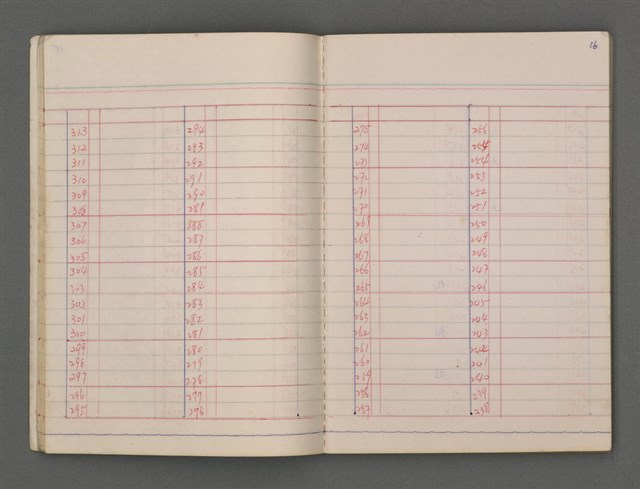 16
313
312
311
310
309
308
307
306
305
304
303
302
301
300
299
298
297
296
295
294
293
292
291
290
289
288
287
286
285
284
283
282
281
280
279
278
277
276
275
274
273
272
271
270
269
268
267
266
265
264
263
262
261
260
259
258
257
256
254
253
252
251
250
249
248
247
246
245
244
243
242
241
240
239
238